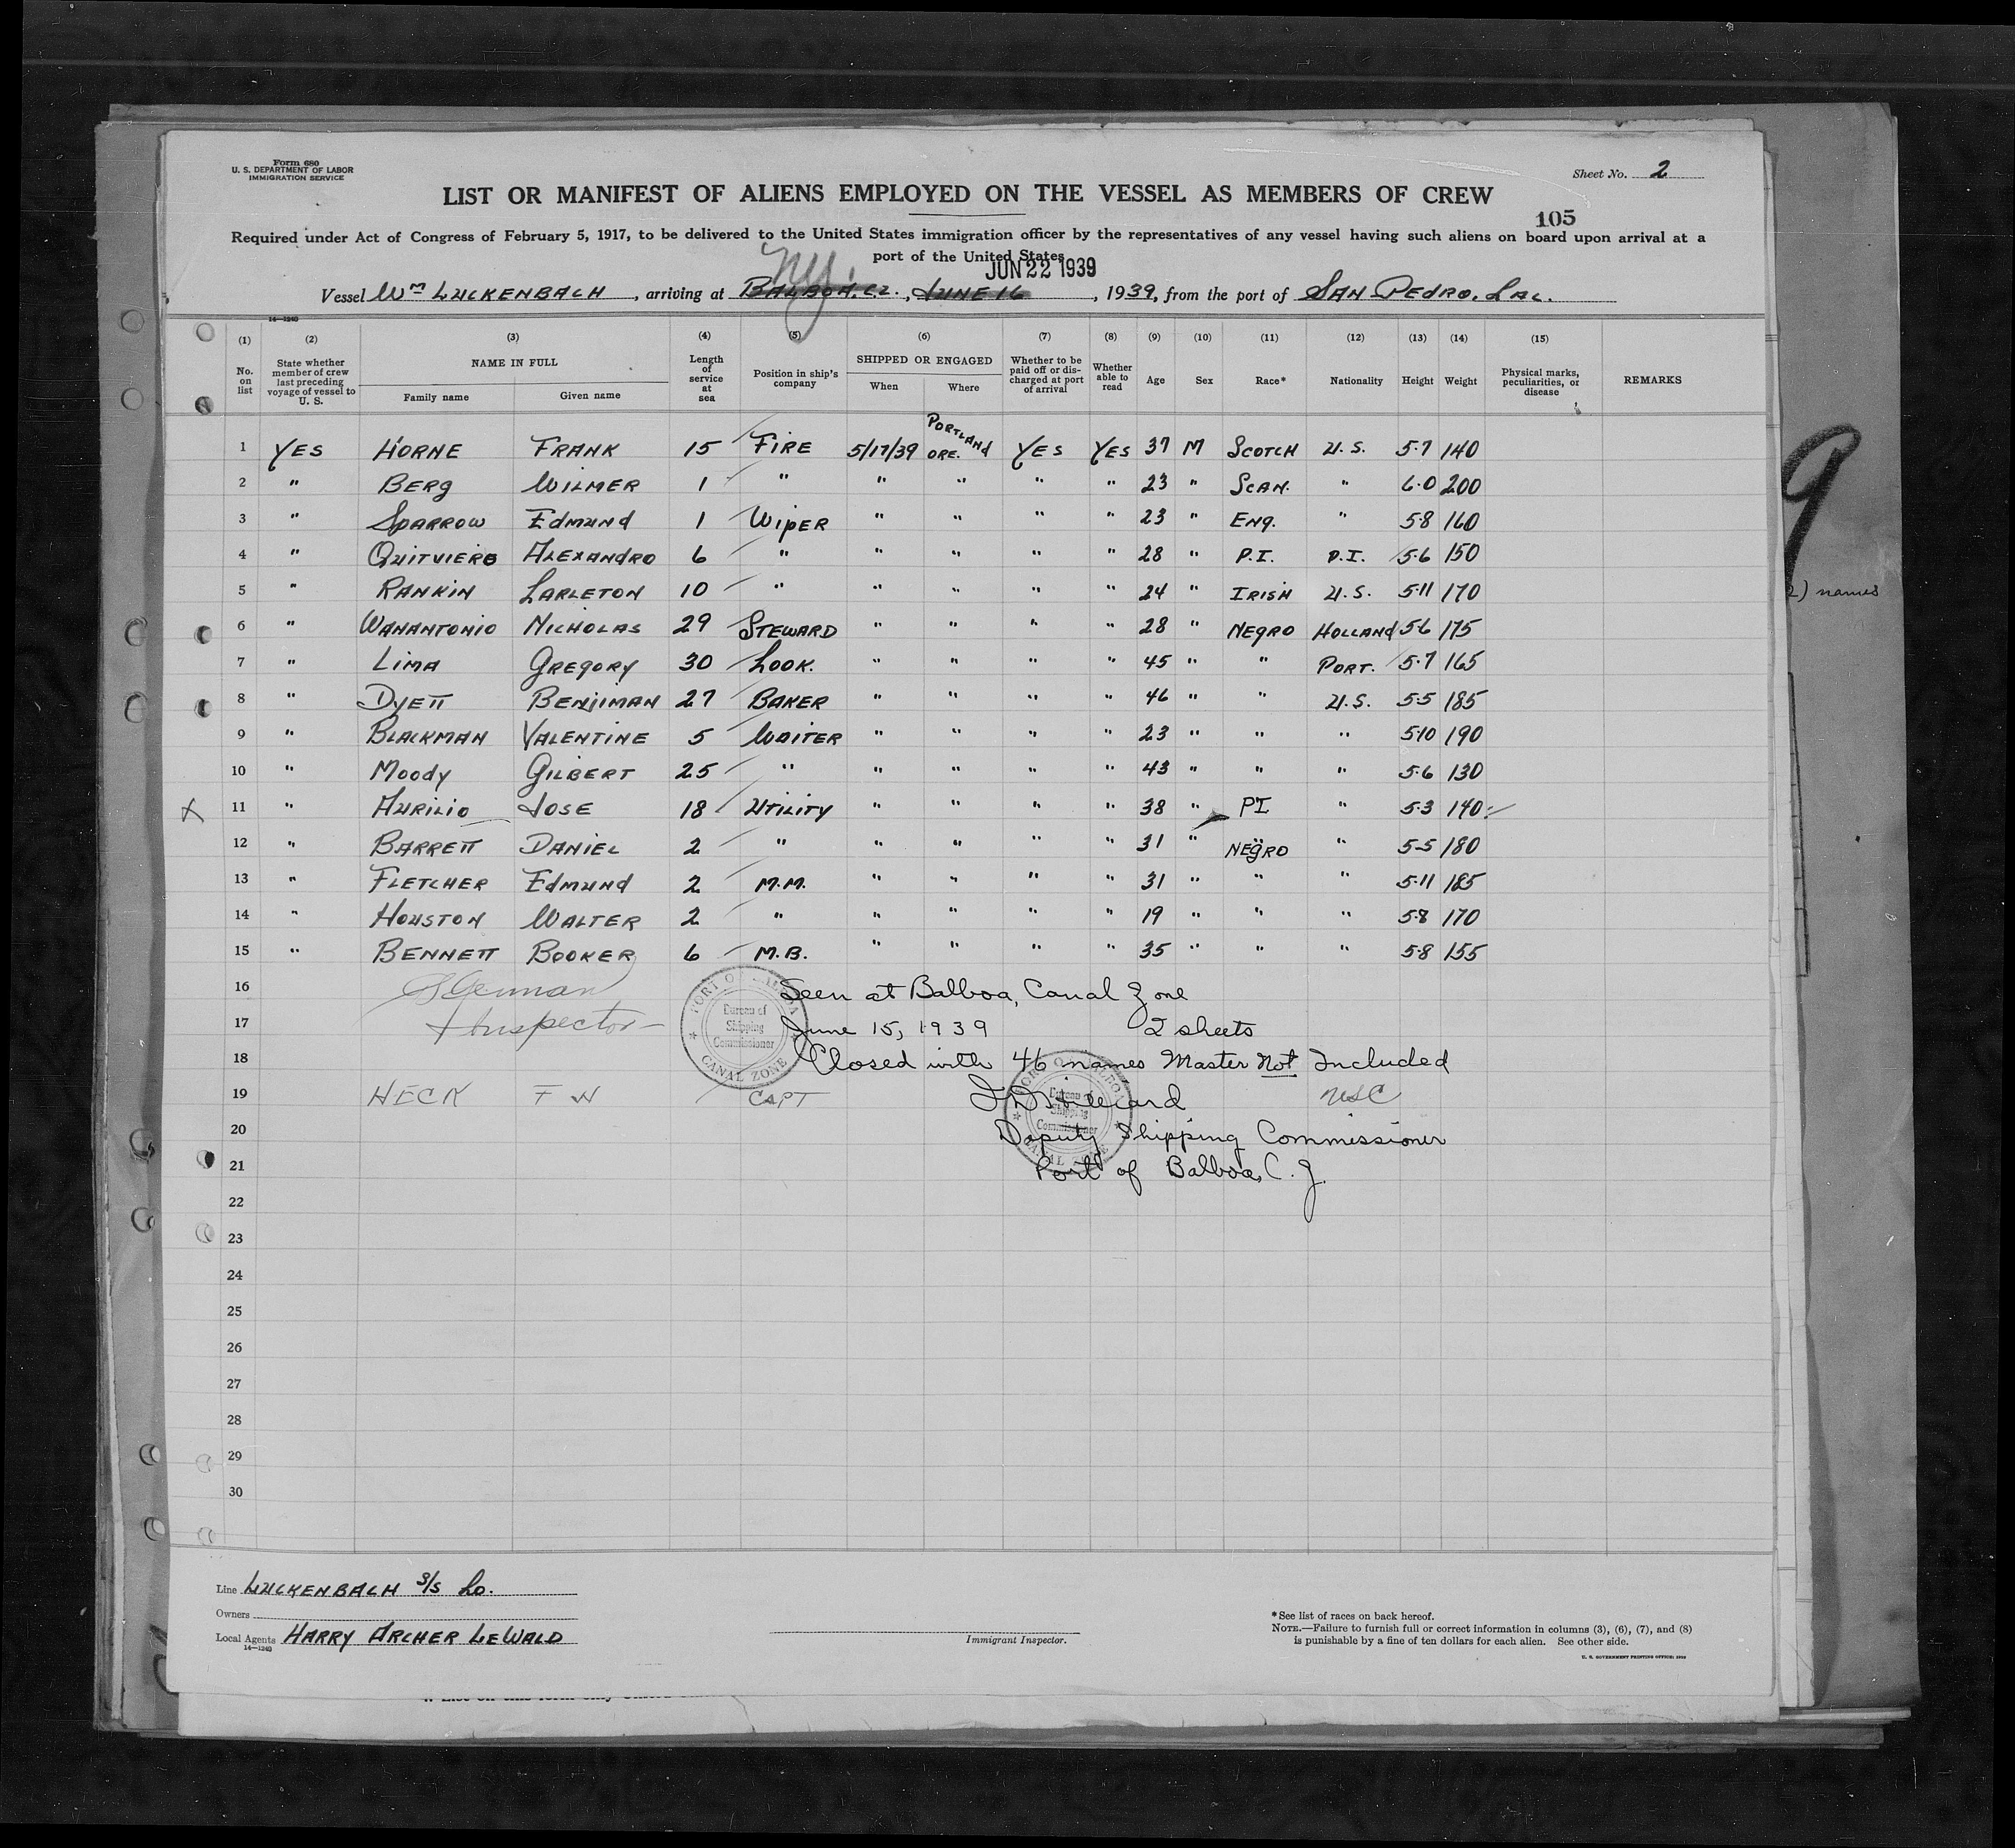 Form 680
U. S. DEPARTMENT OF LABOR
IMMIGRATION SERVICE
Sheet No. 2
LIST OR MANIFEST OF ALIENS EMPLOYED ON THE VESSEL AS MEMBERS OF CREW
105
Required under Act of Congress of February 5, 1917, to be delivered to the United States immigration officer by the representatives of any vessel having such aliens on board upon arrival at a
port of the United States
N.Y. JUN 22 1939
Vessel Wm LUCKENBACH, arriving at BALBOA, C.Z., JUNE 16, 1939, from the port of SAN PEDRO, CAL.
14—1240
(1) (2) (3) (4) (5) (6) (7) (8) (9) (10) (11) (12) (13) (14) (15)
No. on list State whether member of crew last preceding voyage of vessel to U. S. NAME IN FULL Family name Given name Length of service at sea Position in ship's company SHIPPED OR ENGAGED When Where Whether to be paid off or discharged at port of arrival Whether able to read Age Sex Race* Nationality Height Weight Physical marks, peculiarities, or disease REMARKS
1 YES HORNE FRANK 15 FIRE 5/17/39 PORTLAND ORE. YES YES 37 M SCOTCH U.S. 5-7 140
2 " BERG WILMER 1 " " " " " 23 " SCAN. " 6-0 200
3 " SPARROW EDMUND 1 WIPER " " " " 23 " ENG. " 5-8 160
4 " QUITVIERO ALEXANDRO 6 " " " " " 28 " P.I. P.I. 5-6 150
5 " RANKIN CARLETON 10 " " " " " 24 " IRISH U.S. 5-11 170
6 " WANANTONIO NICHOLAS 29 STEWARD " " " " 28 " NEGRO HOLLAND 5-6 175
7 " LIMA GREGORY 30 COOK. " " " " 45 " " PORT. 5-7 165
8 " DYETT BENJIMAN 27 BAKER " " " " 46 " " U.S. 5-5 185
9 " BLACKMAN VALENTINE 5 WAITER " " " " 23 " " " 5-10 190
10 " MOODY GILBERT 25 " " " " " 43 " " " 5-6 130
X 11 " AURILIO JOSE 18 UTILITY " " " " 38 " PI " 5-3 140
12 " BARRETT DANIEL 2 " " " " " 31 " NEGRO " 5-5 180
13 " FLETCHER EDMUND 2 M.M. " " " " 31 " " " 5-11 185
14 " HOUSTON WALTER 2 " " " " " 19 " " " 5-8 170
15 " BENNETT BOOKER 6 M.B. " " " " 35 " " " 5-8 155
16 Seen at Balboa, Canal Zone
17 Inspector June 15, 1939 2 sheets
18 Closed with 46 names Master Not Included
19 HECK F W CAPT USC
20 Deputy Shipping Commissioner
21 Port of Balboa, C. Z.
22
23
24
25
26
27
28
29
30
Bureau of Shipping Commissioner
CANAL ZONE
Bureau of Shipping Commissioner
9
2) names
Line LUCKENBACH S/S CO.
Owners
Local Agents HARRY ARCHER LEWALD
14—1240
Immigrant Inspector.
*See list of races on back hereof.
NOTE.—Failure to furnish full or correct information in columns (3), (6), (7), and (8)
is punishable by a fine of ten dollars for each alien. See other side.